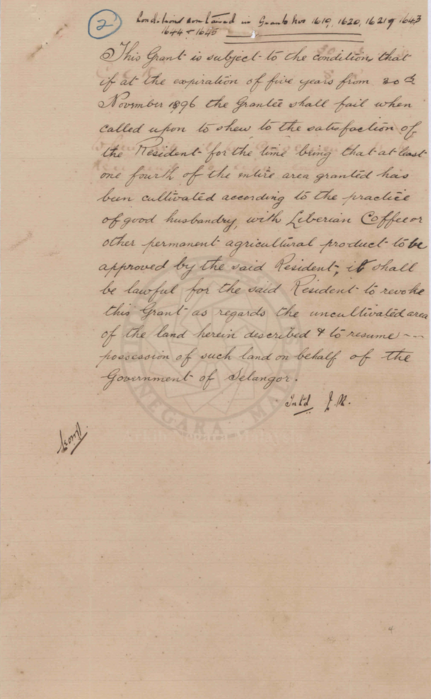 2
Conditions contained in Grants Nos 1619, 1620, 1621 & 1643
1644 & 1645
This Grant is subject to the condition that
if at the expiration of five years from 20th
November 1896 the Grantee shall fail when
called upon to shew to the satisfaction of
the Resident for the time being that at least
one fourth of the entire area granted has
been cultivated according to the practice
of good husbandry, with Liberian Coffee or
other permanent agricultural product to be
approved by the said Resident, it shall
be lawful for the said Resident to revoke
this Grant as regards the uncultivated area
of the land herein described & to resume ---
possession of such land on behalf of the
Government of Selangor.
Intd
NEGARA